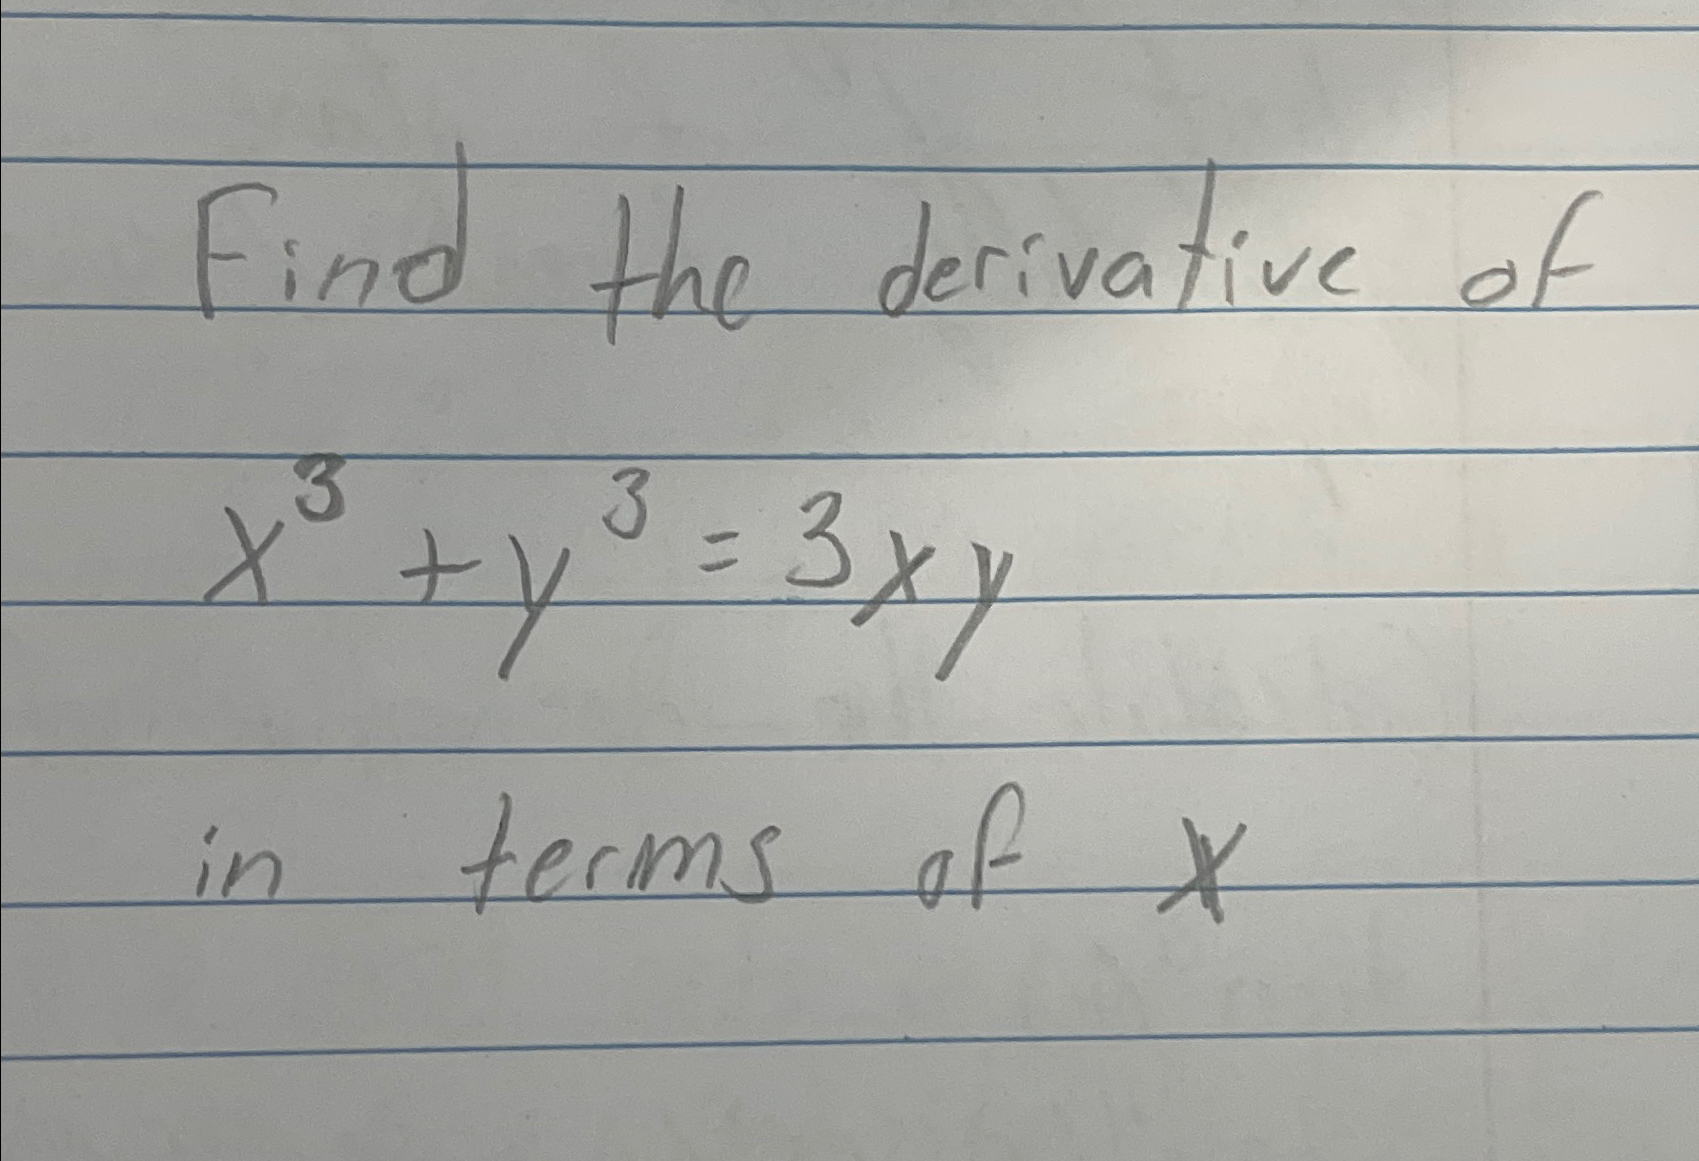 Find the derivative of
x³ + y³ = 3xy
in terms of x